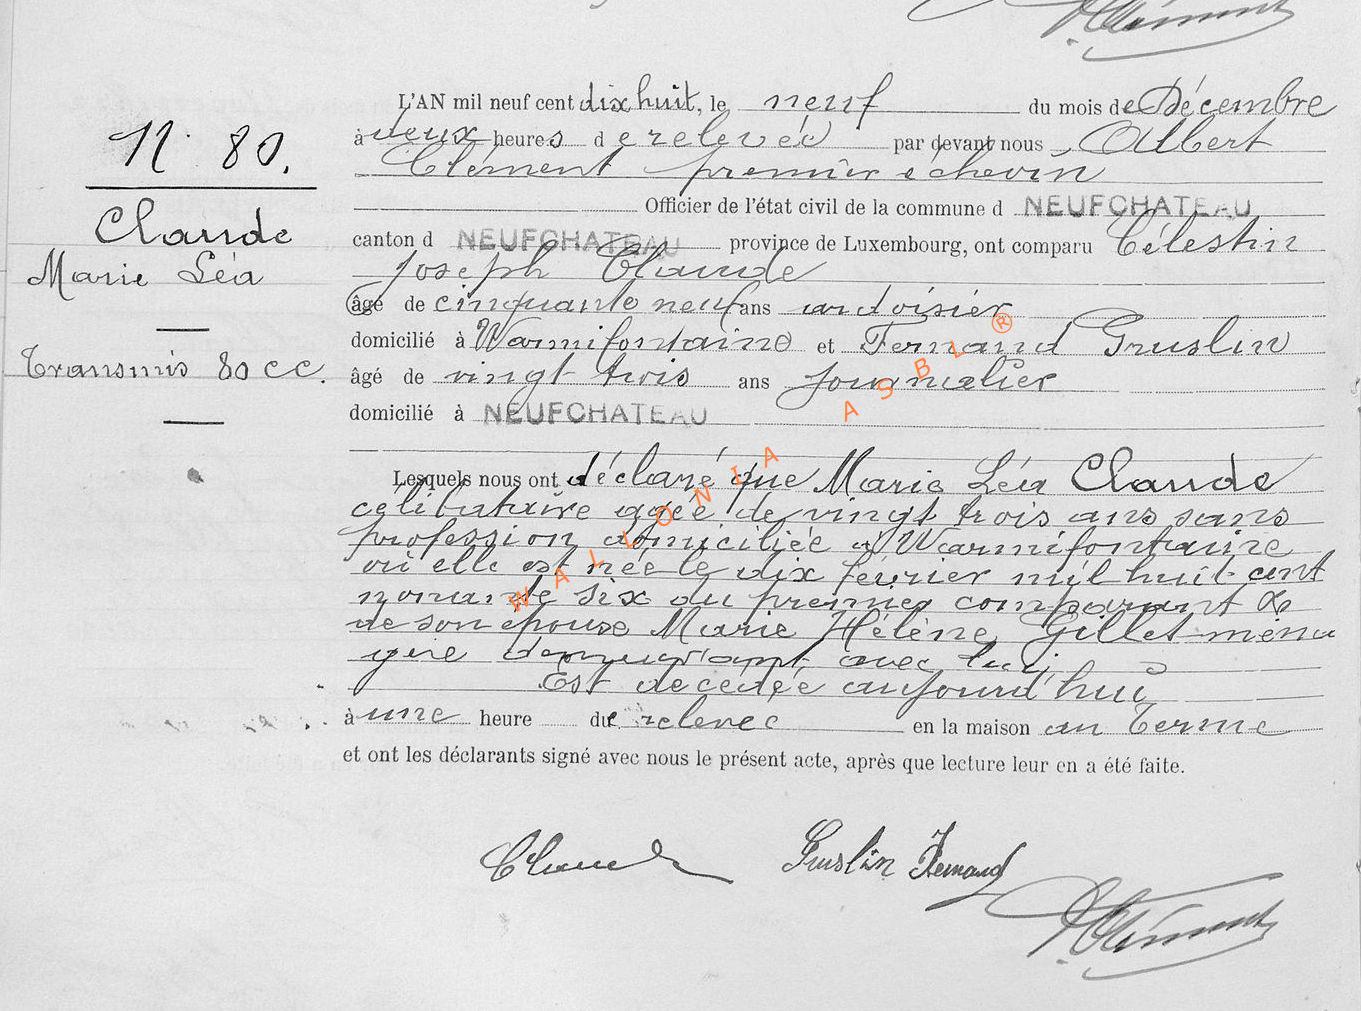 N° 80.
Claude
Marie Léa
Transmis 80 CC.
L'AN mil neuf cent dix huit, le neuf du mois de Décembre
à deux heures de relevée par devant nous, Albert
Clément premier échevin
Officier de l'état civil de la commune d NEUFCHATEAU
canton d NEUFCHATEAU province de Luxembourg, ont comparu Célestin
Joseph Claude
âgé de cinquante neuf ans ardoisier
domicilié à Warmifontaine et Fernand Gruslin
âgé de vingt trois ans journalier
domicilié à NEUFCHATEAU
Lesquels nous ont déclaré que Marie Léa Claude
célibataire agée de vingt trois ans sans
profession domiciliée à Warmifontaine
où elle est née le dix février mil huit cent
nonante six du premier comparant &
de son épouse Marie Hélène Gillet ména
gère demeurant avec lui
Est décédée aujourd'hui
à une heure de relevée en la maison au Terme
et ont les déclarants signé avec nous le présent acte, après que lecture leur en a été faite.
Claude Gruslin Fernand
A Clément
WALLONIA ASBL ®